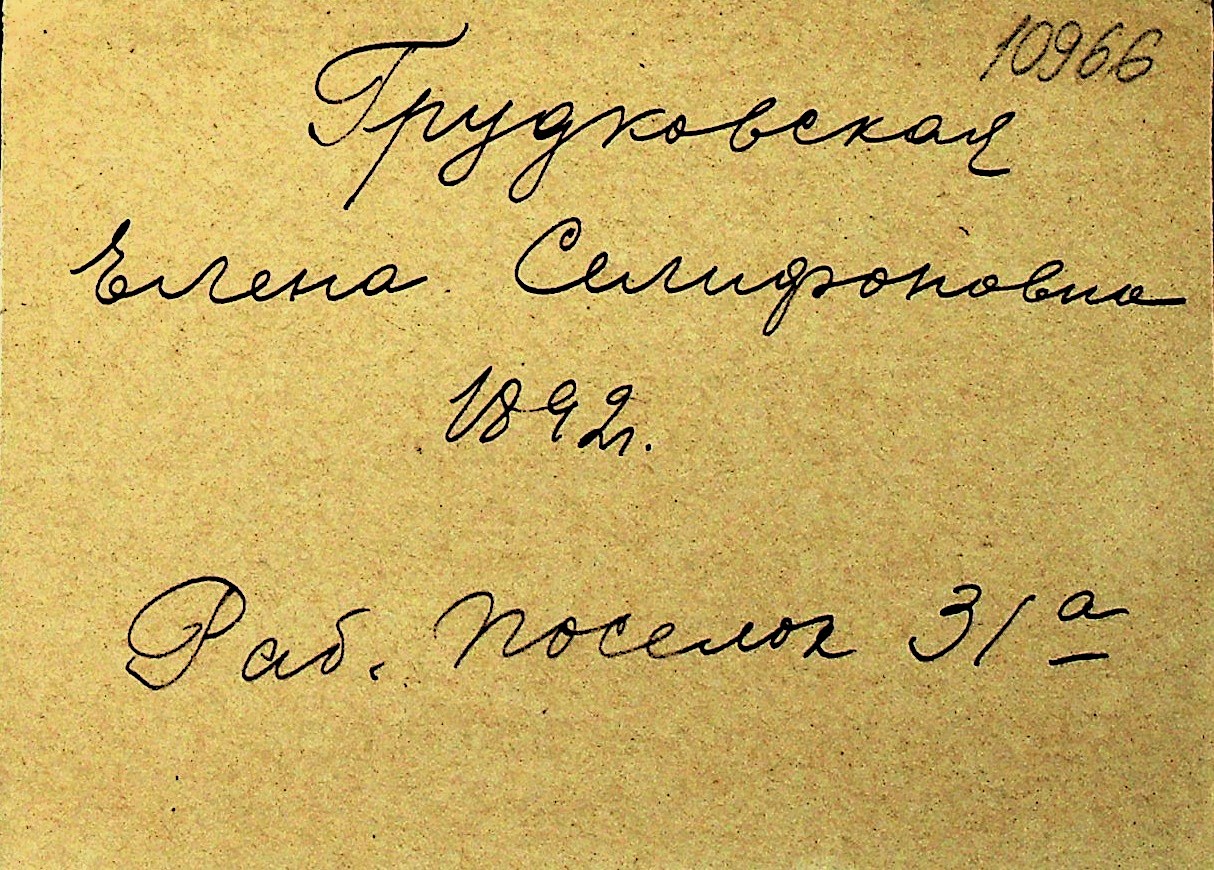 10966
Грудковская
Елена Селифоновна
1892г.
Раб. поселок 31а